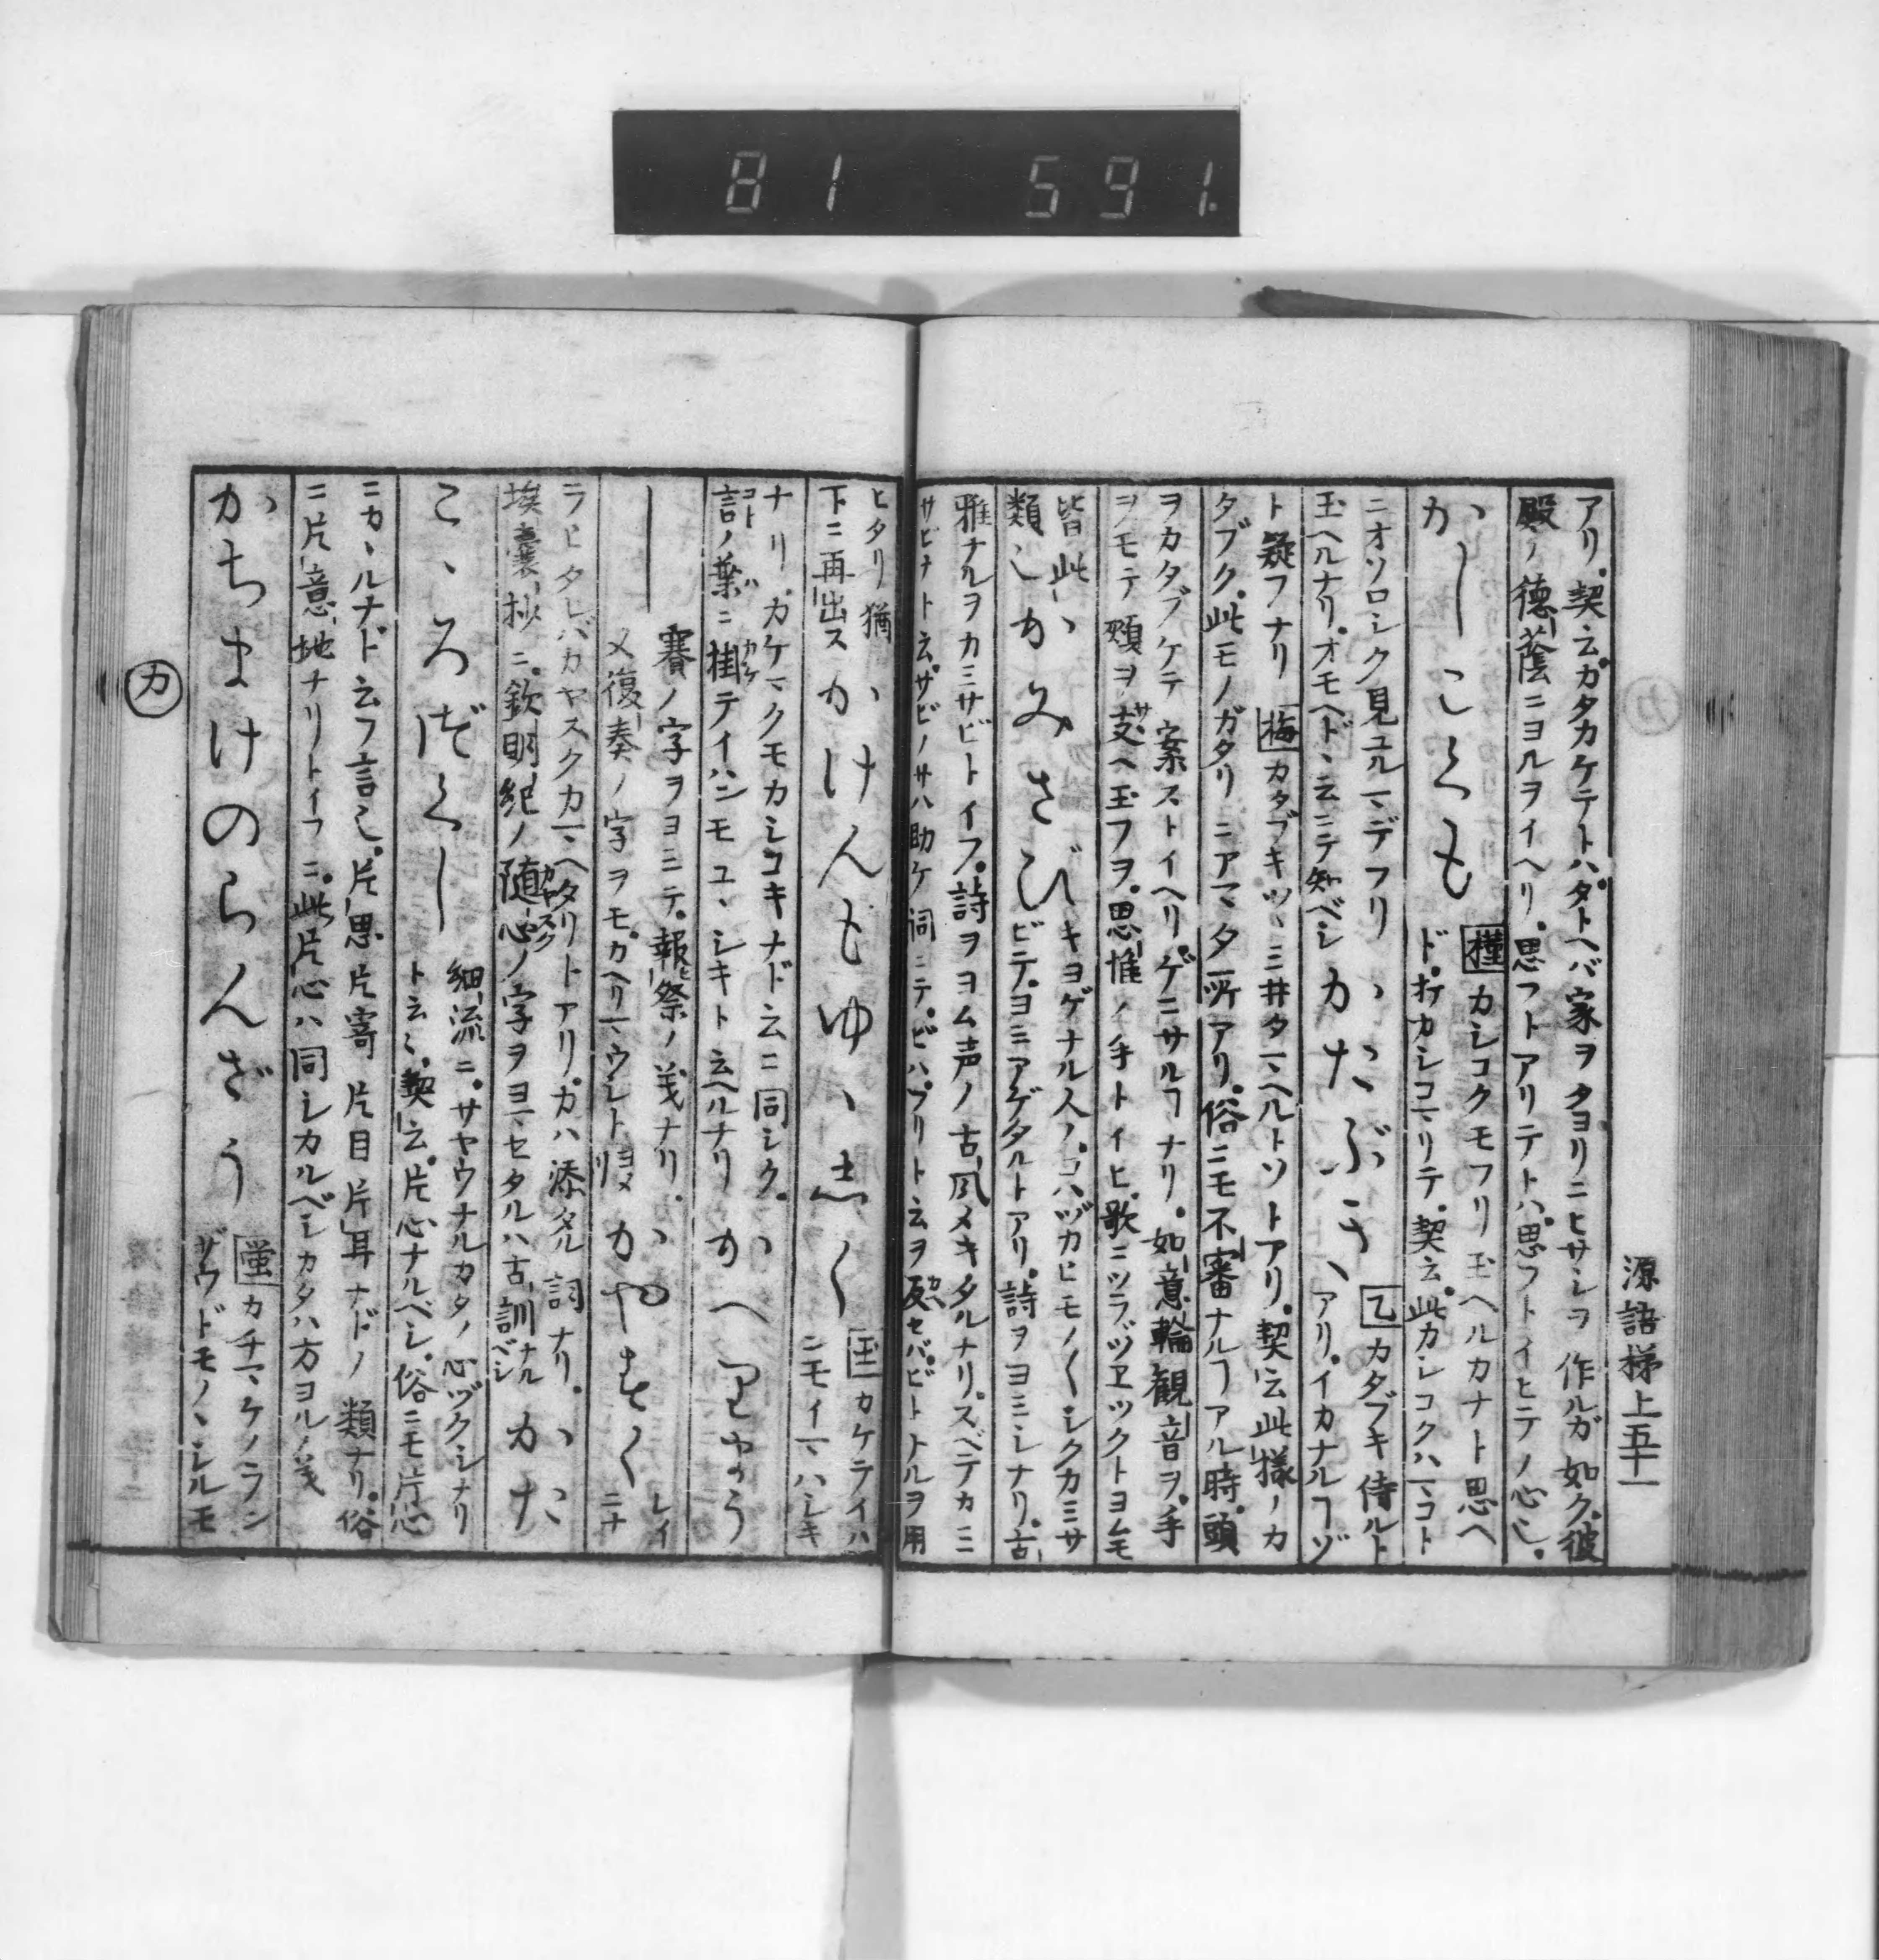 81 591.
源語梯上五十一
アリ。契云。カタカケテトハ。タトヘバ家ヲタヨリニヒサシヲ作ルガ如ク。彼
殿ノ徳蔭ニヨルヲイヘリ。思フトアリテトハ。思フトイヒテノ心也。
かしこくも
槿カシコクモフリ玉ヘルカナト思ヘ
ド。打カシコマリテ。契云。此カシコクハマコト
ニオソロシク見ユルマデフリ
玉ヘルナリ。オモヘドヽ云ニテ知ベシ
かたぶきヽ
乙カタブキ侍ルト
アリ。イカナルヿゾ
ト疑フナリ 梅カタブキツヽミ井タマヘルトソトアリ。契云此様ノカ
タブク。此モノガタリニアマタ所アリ。俗ニモ不審ナルヿアル時。頭
ヲカタブケテ案ストイヘリ。ゲニサルヿナリ。如意輪観音ヲ。手
ヲモテ頬ヲ支ヘ玉フヲ。思惟ノ手トイヒ。歌ニツラヅヱツクトヨムモ
皆此
類也
かみさび
キヨゲナル人ノ。コハヅカヒモノ〱シクカミサ
ビテ。ヨミアゲタルトアリ。詩ヲヨミシナリ。古
雅ナルヲカミサビトイフ。詩ヲヨム声ノ古風メキタルナリ。スベテカミ
サビナト云。サビノサハ助ケ詞ニテ。ビハ。ブリト云ヲ反セバ。ビトナルヲ用
ヒタリ猶
下ニ再出ス
かけんもゆヽし〱
玉カケテイハ
ニモイマハシキ
ナリ。カケマクモカシコキナド云ニ同シク。
言ノ葉ニ掛テイハンモユヽシキト云ヘルナリ
かへりまう
し
賽ノ字ヲヨミテ。報祭ノ義ナリ。
又復奏ノ字ヲモ。カヘリマウシトヨメリ
かやすく
レイ
ニナ
ラヒタレバカヤスクカマヘタリトアリ。カハ添タル詞ナリ。
埃嚢抄ニ。欽明紀ノ随心ノ字ヲヨマセタルハ古訓ナルベシ
かた
こヽろづくし
細流ニ。サヤウナルカタノ心ヅクシナリ
ト云々。契云。片心ナルベシ。俗ニモ片心
ニカヽルナド云フ言也。片思片寄片目片耳ナドノ類ナリ。俗
ニ片意地ナリトイフニ。此片心ハ同シカルベシカタハ方ヨルノ義
かちまけのらんざう
蛍カチマケノラン
ザウドモノヽシルモ
カ